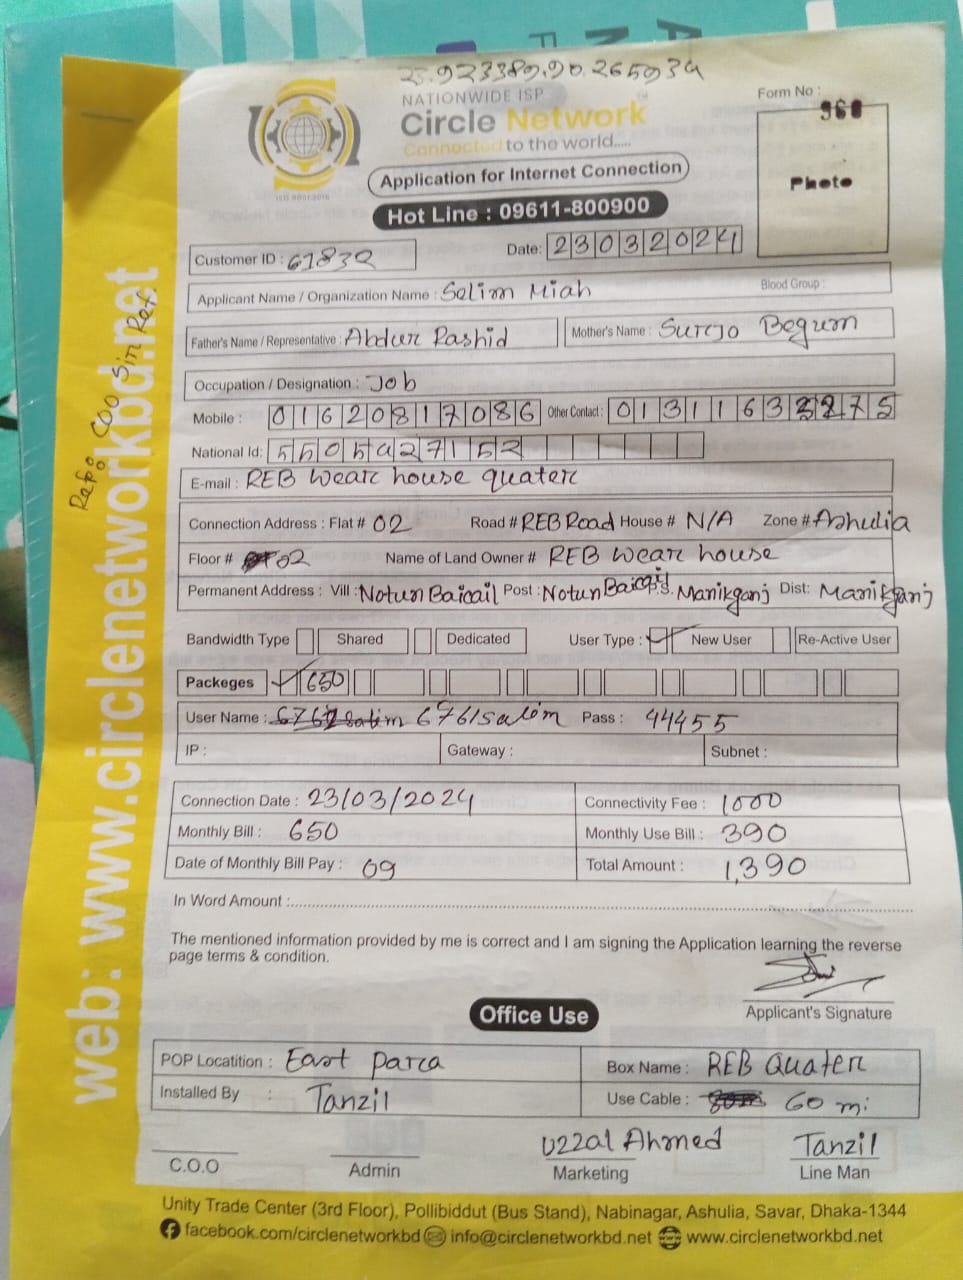 23.923389,90.265934
NATIONWIDE ISP
Circle Network
Connected to the world.....
ISO 9001:2015
Form No :
960
Photo
Application for Internet Connection
Hot Line : 09611-800900
Customer ID : 61832 Date: 23032024
Applicant Name / Organization Name : Selim Miah Blood Group :
Father's Name / Representative : Abdur Rashid Mother's Name : Surejo Begum
Occupation / Designation : Job
Mobile : 01620817086 Other Contact : 01311633275
National Id: 5505427152
E-mail : REB wear house quater
Connection Address : Flat # 02 Road # REB Road House # N/A Zone # Ashulia
Floor # 02 Name of Land Owner # REB wear house
Permanent Address : Vill : Notun Baicail Post : Notun Baicail P.S. Manikganj Dist: Manikganj
Bandwidth Type Shared Dedicated User Type : New User Re-Active User
Packeges 650
User Name : 6761salim Pass : 44455
IP : Gateway : Subnet :
Connection Date : 23/03/2024 Connectivity Fee : 1000
Monthly Bill : 650 Monthly Use Bill : 390
Date of Monthly Bill Pay : 09 Total Amount : 1,390
In Word Amount :
The mentioned information provided by me is correct and I am signing the Application learning the reverse
page terms & condition.
Applicant's Signature
Office Use
POP Locatition : East Parca Box Name : REB Quater
Installed By : Tanzil Use Cable : 60 mi
Uzzal Ahmed Tanzil
C.O.O Admin Marketing Line Man
Unity Trade Center (3rd Floor), Pollibiddut (Bus Stand), Nabinagar, Ashulia, Savar, Dhaka-1344
facebook.com/circlenetworkbd info@circlenetworkbd.net www.circlenetworkbd.net
web: www.circlenetworkbd.net
Refo: COO Sir Ref.